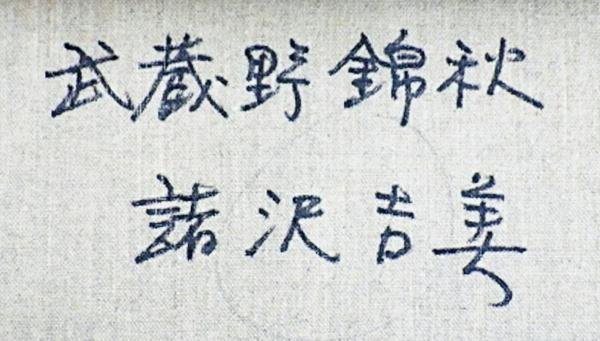 武蔵野錦秋
諸沢吉美